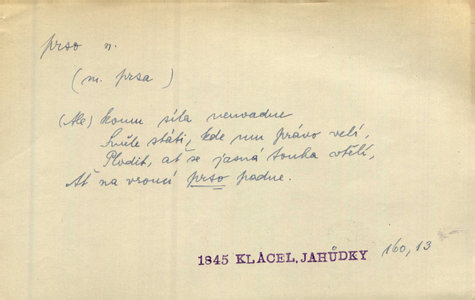 prso n.
(m. prsa)
(Ale) komu síla neuvadne
Směle státi, kde mu právo velí,
Plodit, ať se jasná touha vtělí,
Ať na vroucí prso padne.
1845 KLÁCEL, JAHŮDKY 160, 13